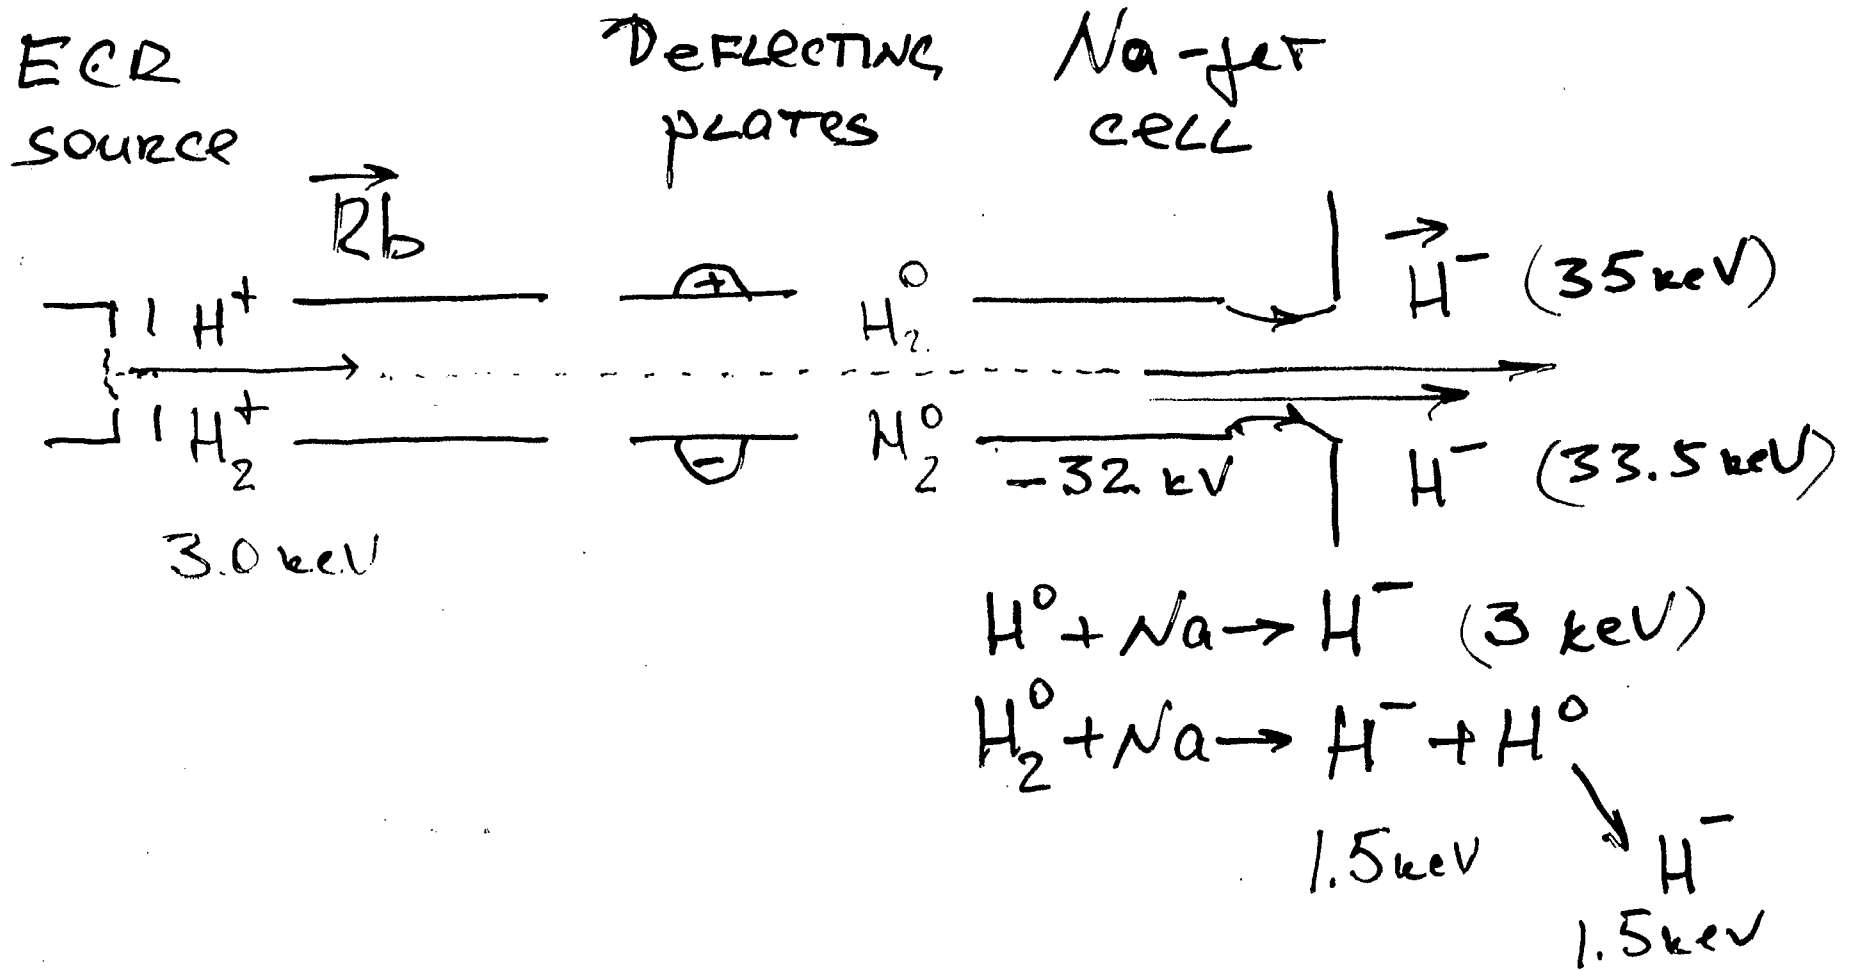 ECR
SOURCE
DEFLECTING
PLATES
Na-jet
CELL
→
Rb
H⁺
+
H₂⁰
→
H⁻ (35 keV)
H₂⁺
−
H₂⁰
−32 kV
H⁻ (33.5 keV)
3.0 keV
H⁰ + Na → H⁻ (3 keV)
H₂⁰ + Na → H⁻ + H⁰
1.5 keV
H⁻
1.5 keV